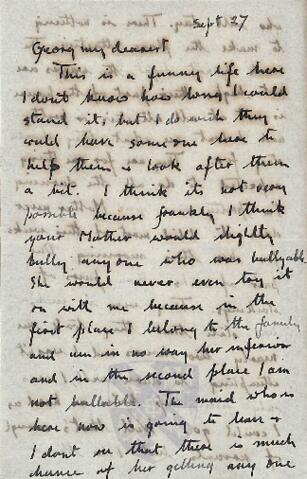 Sept 27
Georg my dearest
This is a funny life here
I don't know how long I could
stand it, but I do wish they
could have someone here to
help them & look after them
a bit. I think its not very
possible because frankly I think
your Mother would slightly
bully anyone who was bullyable.
She would never even try it
on with me because in the
first place I belong to the family
and am in no way her inferior
and in the second place I am
not bullable. The maid who is
here now is going to leave &
I dont see that there is much
chance of her getting any one